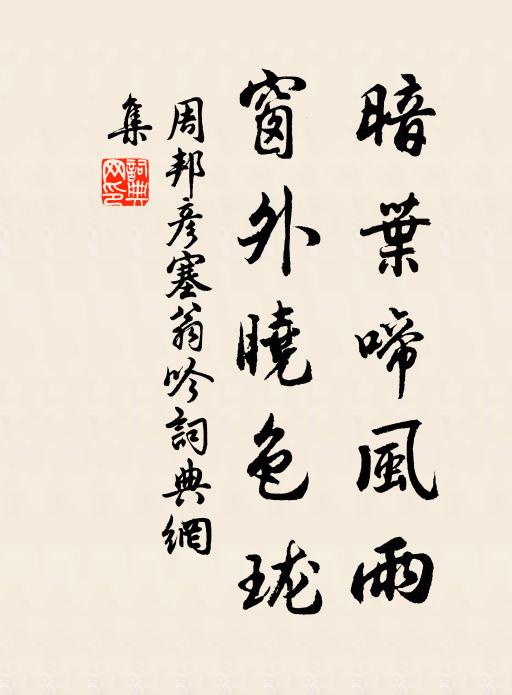 暗葉啼風雨
窗外曉色瓏
周邦彦塞翁吟詞典網
集
詞典網印